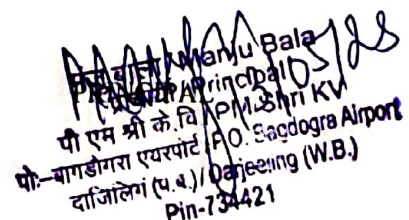 मंजू बाला / Manju Bala
प्राचार्य / Principal
पी एम श्री के.वि / PM Shri KV
पो:-बागडोगरा एयरपोर्ट / P.O. Bagdogra Airport
दार्जिलिंग (प.ब.) / Darjeeling (W.B.)
Pin-734421